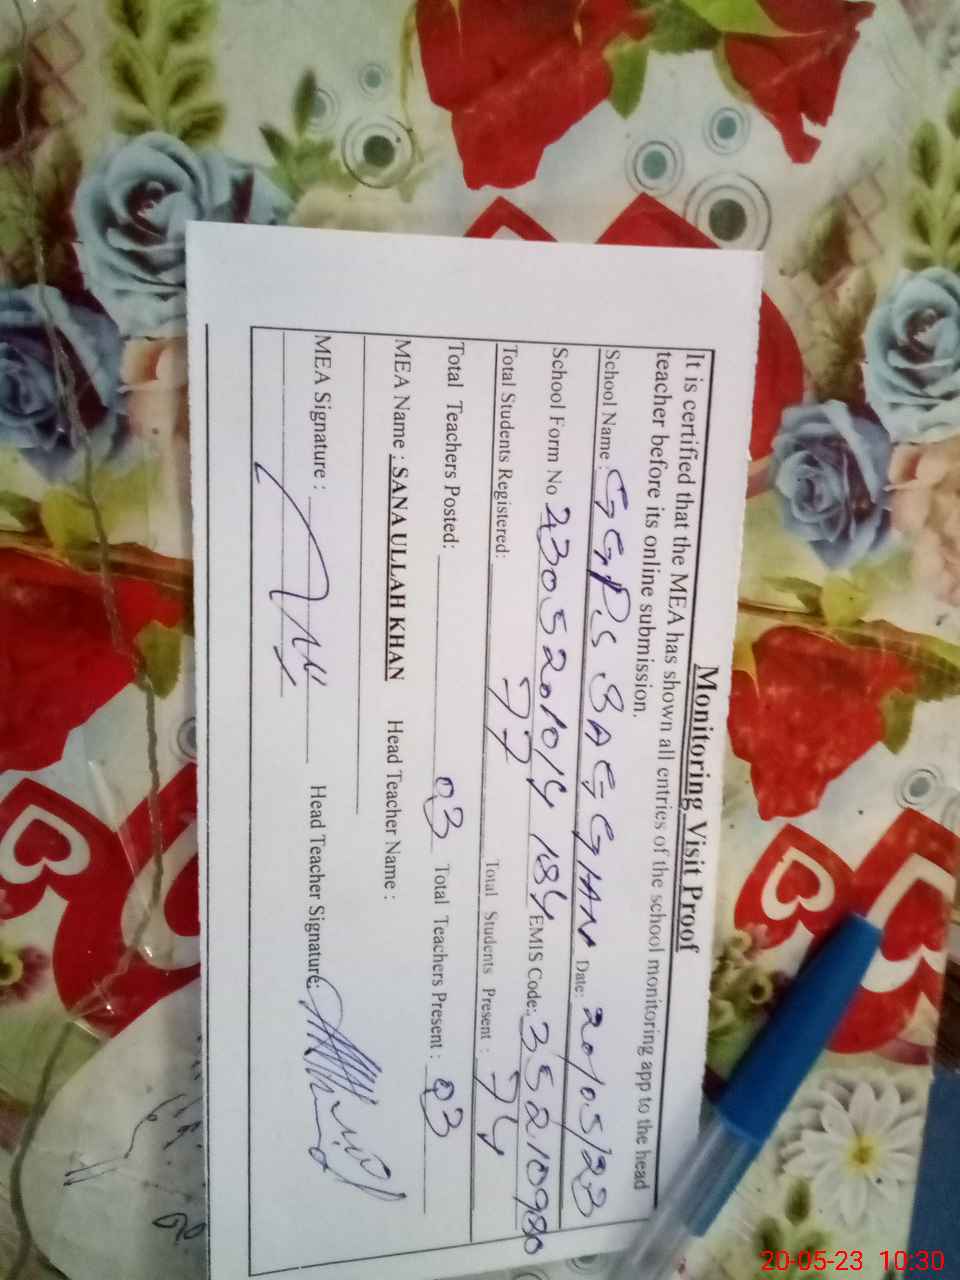 Monitoring Visit Proof
It is certified that the MEA has shown all entries of the school monitoring app to the head
teacher before its online submission.
School Name: GGPS BAGGIAN Date: 20/05/23
School Form No 2305201014184 EMIS Code: 35210980
Total Students Registered: 77 Total Students Present: 74
Total Teachers Posted: 03 Total Teachers Present: 03
MEA Name: SANA ULLAH KHAN Head Teacher Name:
MEA Signature: Head Teacher Signature:
20-05-23 10:30